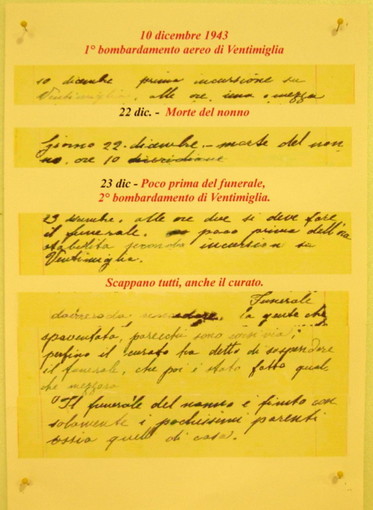 10 dicembre 1943
1° bombardamento aereo di Ventimiglia
10 dicembre prima incursione su
Ventimiglia, alle ore una e mezza
22 dic. - Morte del nonno
Giorno 22 dicembre – morte del non
no. ore 10
23 dic - Poco prima del funerale,
2° bombardamento di Ventimiglia.
23 alle ore due si deve fare
il funerale. poco prima dell'
stabilita seconda incursion su
Ventimiglia.
Scappano tutti, anche il curato.
Funerale
la gente che
spaventata, parecchi sono via,
perfino il curato ha detto di sospendere
il funerale, che poi è stato fatto qualc
che mezzora
"Il funerale del nonno è finito con
solamente i pochissimi parenti
ossia quelli di casa.